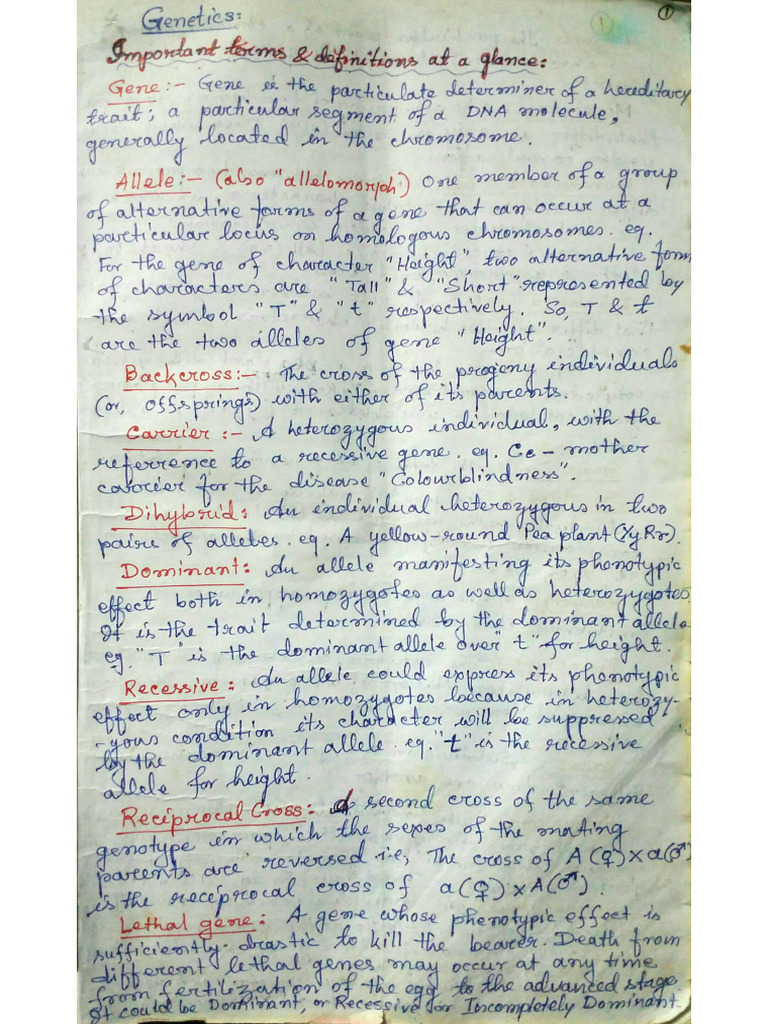 Genetics:
1
1
Important terms & definitions at a glance:
Gene:- Gene is the particulate determiner of a hereditary
trait; a particular segment of a DNA molecule,
generally located in the chromosome.
Allele:- (also "allelomorph") One member of a group
of alternative forms of a gene that can occur at a
particular locus on homologous chromosomes. eg.
For the gene of character "Height", two alternative form
of characters are "Tall" & "Short" represented by
the symbol "T" & "t" respectively. So, T & t
are the two alleles of gene "Height".
Backcross:- The cross of the progeny individuals
(or, offsprings) with either of its parents.
Carrier:- A heterozygous individual, with the
referrence to a recessive gene. eg. Cc - mother
carrier for the disease "Colourblindness".
Dihybrid: An individual heterozygous in two
pairs of alleles. eg. A yellow-round Pea plant (YyRr).
Dominant: An allele manifesting its phenotypic
effect both in homozygotes as well as heterozygotes.
It is the trait determined by the dominant allele
eg. "T" is the dominant allele over "t" for height.
Recessive: An allele could express its phenotypic
effect only in homozygotes because in heterozy-
-gous condition its character will be suppressed
by the dominant allele. eg. "t" is the recessive
allele for height.
Reciprocal Cross: A second cross of the same
genotype in which the sexes of the mating
parents are reversed i.e, The cross of A(♀)×a(♂)
is the reciprocal cross of a(♀)×A(♂).
Lethal gene: A gene whose phenotypic effect is
sufficiently drastic to kill the bearer. Death from
different lethal genes may occur at any time
from fertilization of the egg to the advanced stage.
It could be Dominant, or Recessive or Incompletely Dominant.